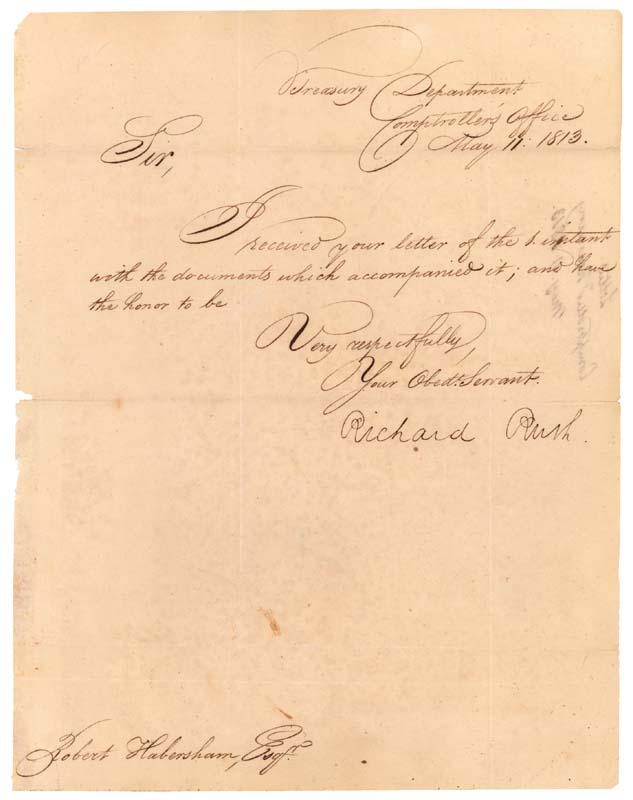 Treasury Department
Comptroller's Office
May 11. 1813.
Sir,
I received your letter of the 1. instant
with the documents which accompanied it; and have
the honor to be
Very respectfully,
Your Obedt. Servant.
Richard Rush.
Robert Habersham, Esqr.